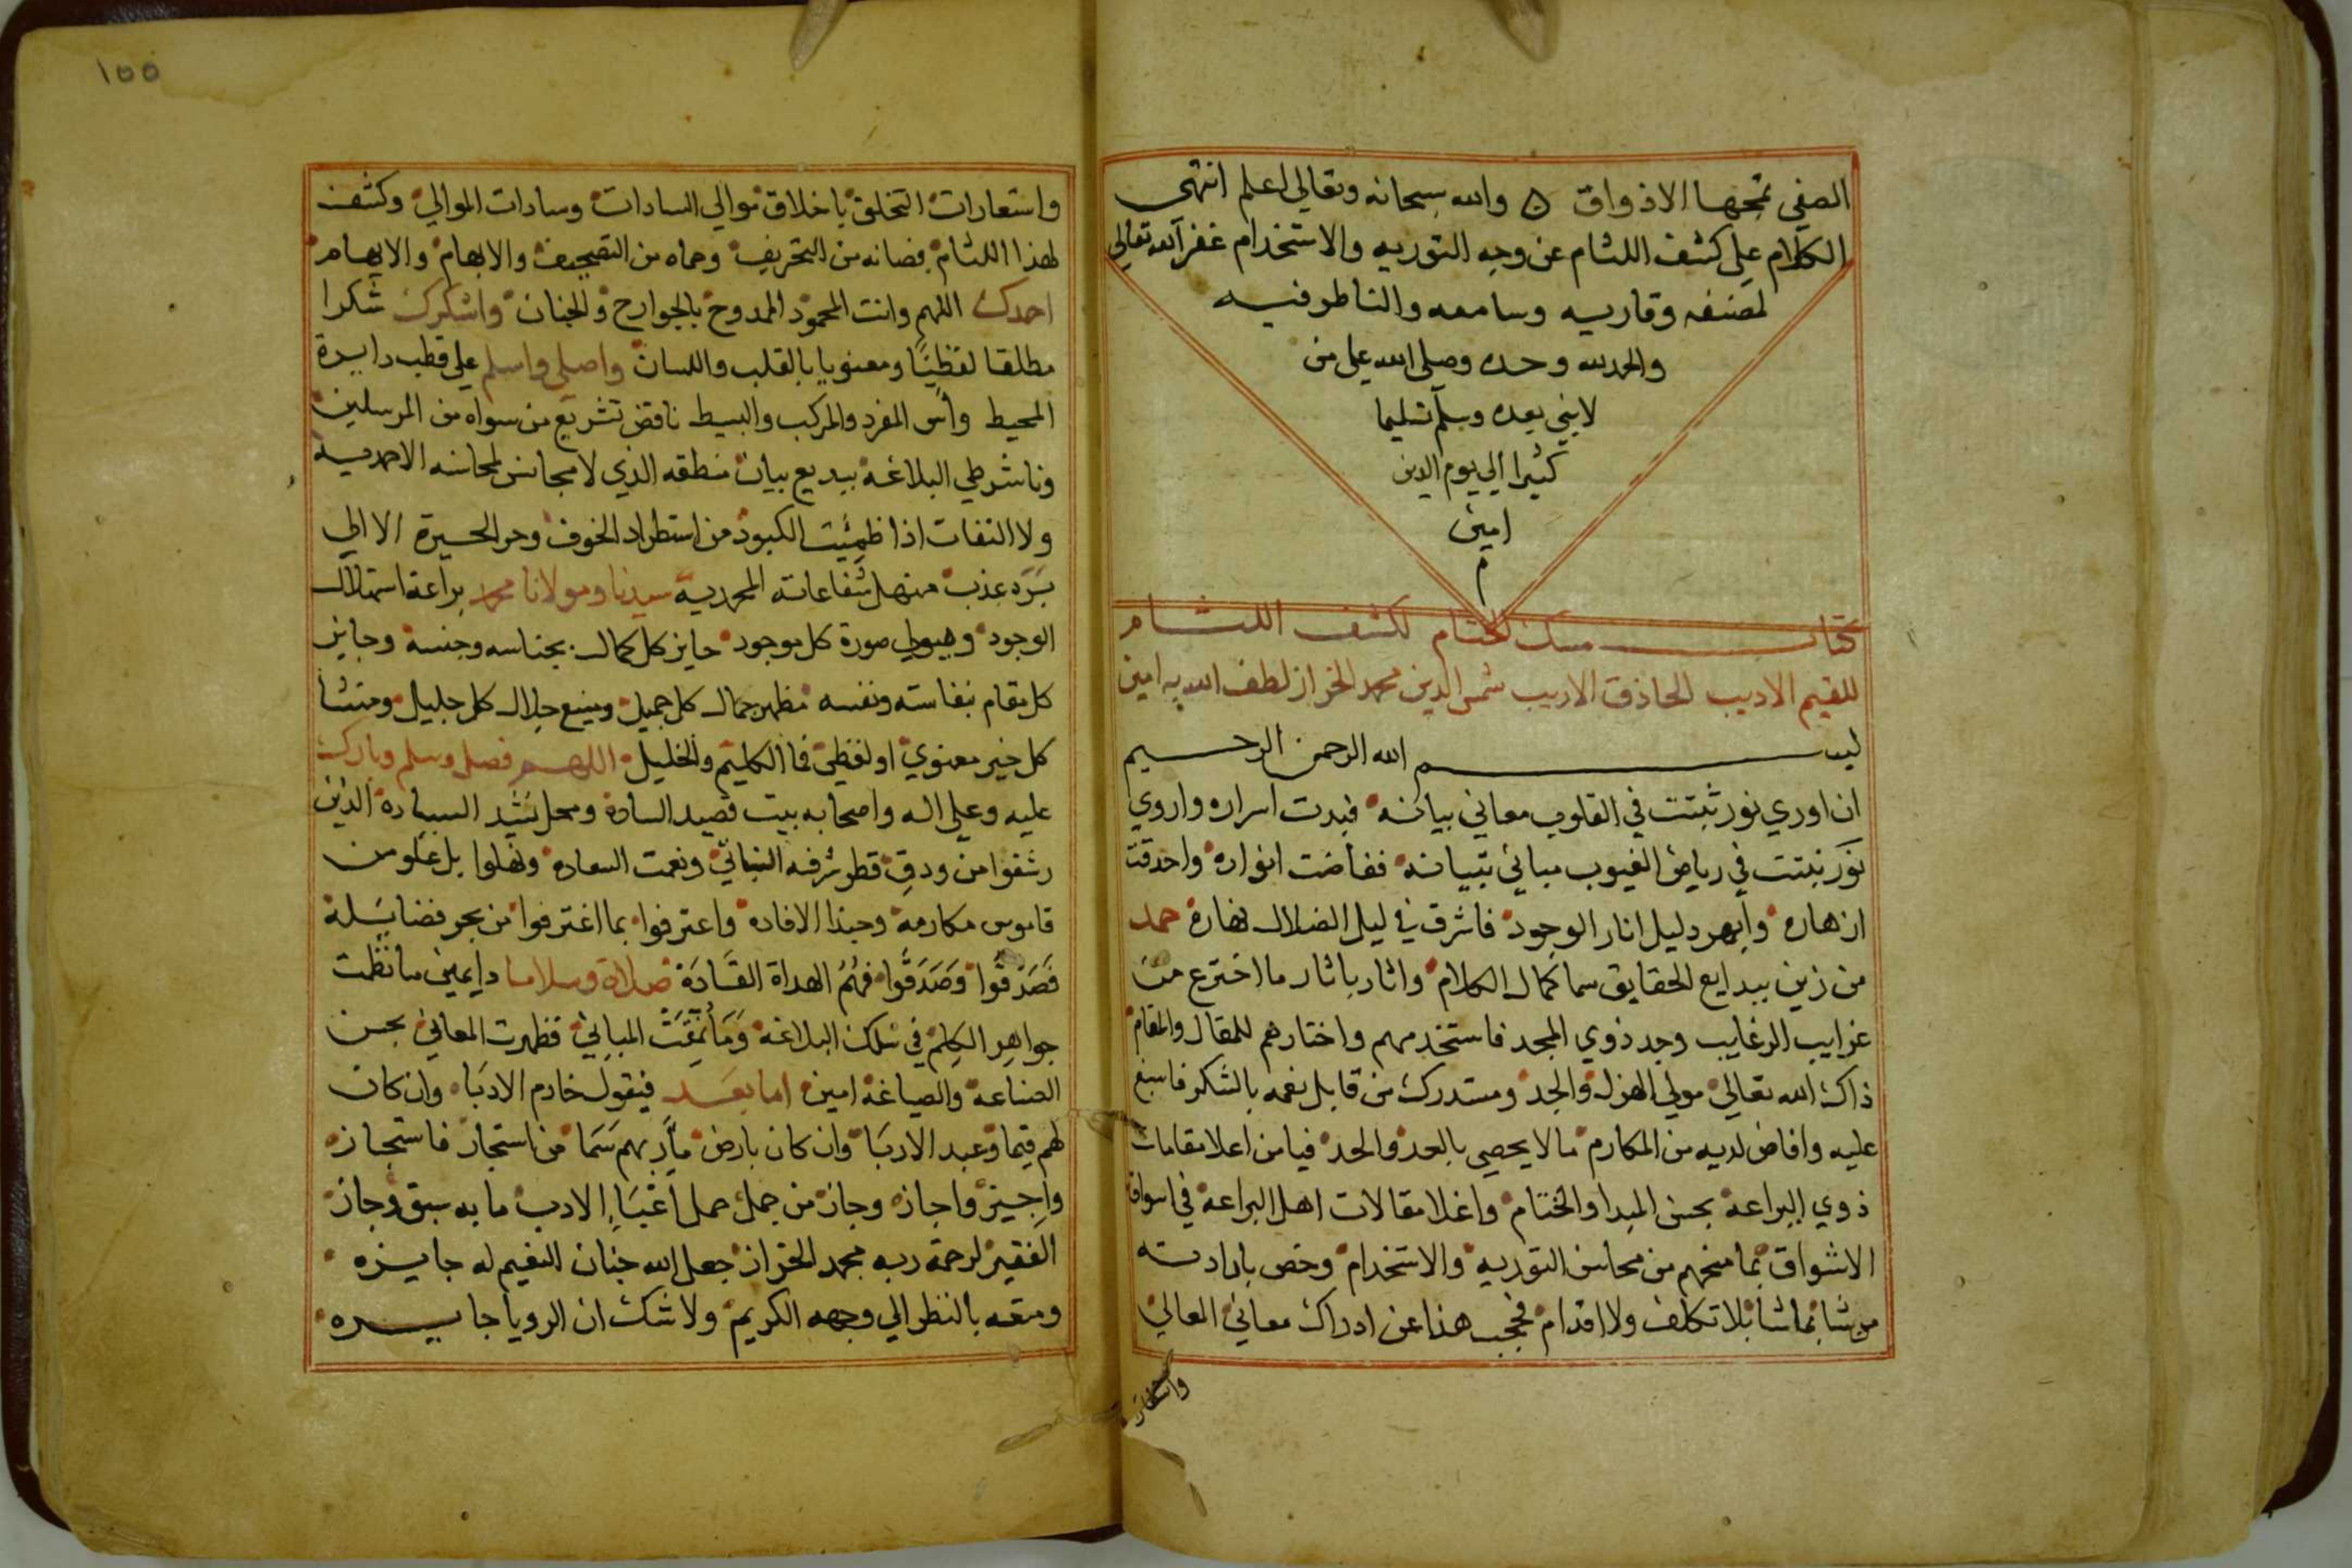 الصفي تمجها الاذواق ۞ والله سبحانه وتعالي اعلم انتهى
الكلام علي كشف اللثام عن وجه التوريه والاستخدام غفر الله تعالي
لمصنفه وقاريه وسامعه والناظر فيه
والحمد لله وحده وصلي الله علي من
لا نبي بعده وسلم تسليما
كثيرا الي يوم الدين
امين
م
كتاب مسك الختام لكشف اللثام
للقيم الاديب الحاذق الاريب شمس الدين محمد الخراز لطف الله به امين
بسم الله الرحمن الرحيم
ان اوري نور ثبتت في القلوب معاني بيانه فبدت اسراره واروي
نور نبتت في رياض الغيوب مباني تبيانه ففاضت انواره واحدقت
ازهاره وابهر دليل انار الوجود فاشرق في ليل الضلال نهاره حمد
من زين ببدايع الحقايق سما كمال الكلام واثار باثار ما اخترع من
غرايب الرغايب وجد ذوي المجد فاستخدمهم واختارهم للمقال والمقام
ذاك الله تعالي مولي الهزل والجد ومستدرك من قابل نعمه بالشكر فاسبغ
عليه وافاض لديه من المكارم ما لا يحصي بالعد والحد فيا من اعلا مقامات
ذوي البراعة بحسن المبدا والختام واغلا مقالات اهل البراعة في اسواق
الاشواق بما منحهم من محاسن التوريه والاستخدام وخص بارادته
من شا بما شا بلا تكلف ولا اقدام فحجب هذا عن ادراك معاني المعالي
واستعارات
١٥٥
واستعارات التخلق باخلاق موالي السادات وسادات الموالي وكشف
لهذا اللثام فصانه من التحريف وحماه من التصحيف والابهام والايهام
احمدك اللهم وانت المحمود الممدوح بالجوارح والجنان واشكرك شكرا
مطلقا لفظيا ومعنويا بالقلب واللسان واصلي واسلم علي قطب دايرة
المحيط واس المفرد والمركب والبسيط ناقض تشريع من سواه من المرسلين
وناشر طي البلاغة ببديع بيان منطقه الذي لا مجانس لمحاسنه الاحمدية
ولا التفات اذا ظمئت الكبود من استطراد الخوف وحر الحسيرة الا الي
برد عذب منهل شفاعاته المحمدية سيدنا ومولانا محمد براعة استهلال
الوجود وهيولي صورة كل موجود حايز كل كمال بجناسه وجنسه وجايز
كل مقام بنفاسته ونفسه مظهر جمال كل جميل ومنبع جلال كل جليل ومنشا
كل خير معنوي او لفظي فما الكليم والخليل اللهم فصل وسلم وبارك
عليه وعلي اله واصحابه بيت قصيد السادة ومحل نشيد السيادة الذين
رشفوا من ودق قطر شرفه النباتي ونعمت السعاده ونهلوا بل علو من
قاموس مكارمه وحبذا الافاده واعترفوا بما اغترفوا من بحر فضايله
فصدقوا وصدقوا فهم الهداة القادة صلاة وسلاما دايمين ما نظمت
جواهر الكلم في سلك البلاغة وما نمقت المباني فظهرت المعاني بحسن
الصناعة والصياغة امين اما بعد فيقول خادم الادبا وان كان
لهم قيما وعبد الادبا وان كان بارض مآربهم سما من استجار فاستجازه
واجيز واجازه وجاز من جمل حمل اغبياء الادب ما به سبق وجازه
الفقير لرحمة ربه محمد الخراز جعل الله جنان النعيم له جايزه
ومتعه بالنظر الي وجهه الكريم ولا شك ان الرويا جايزه